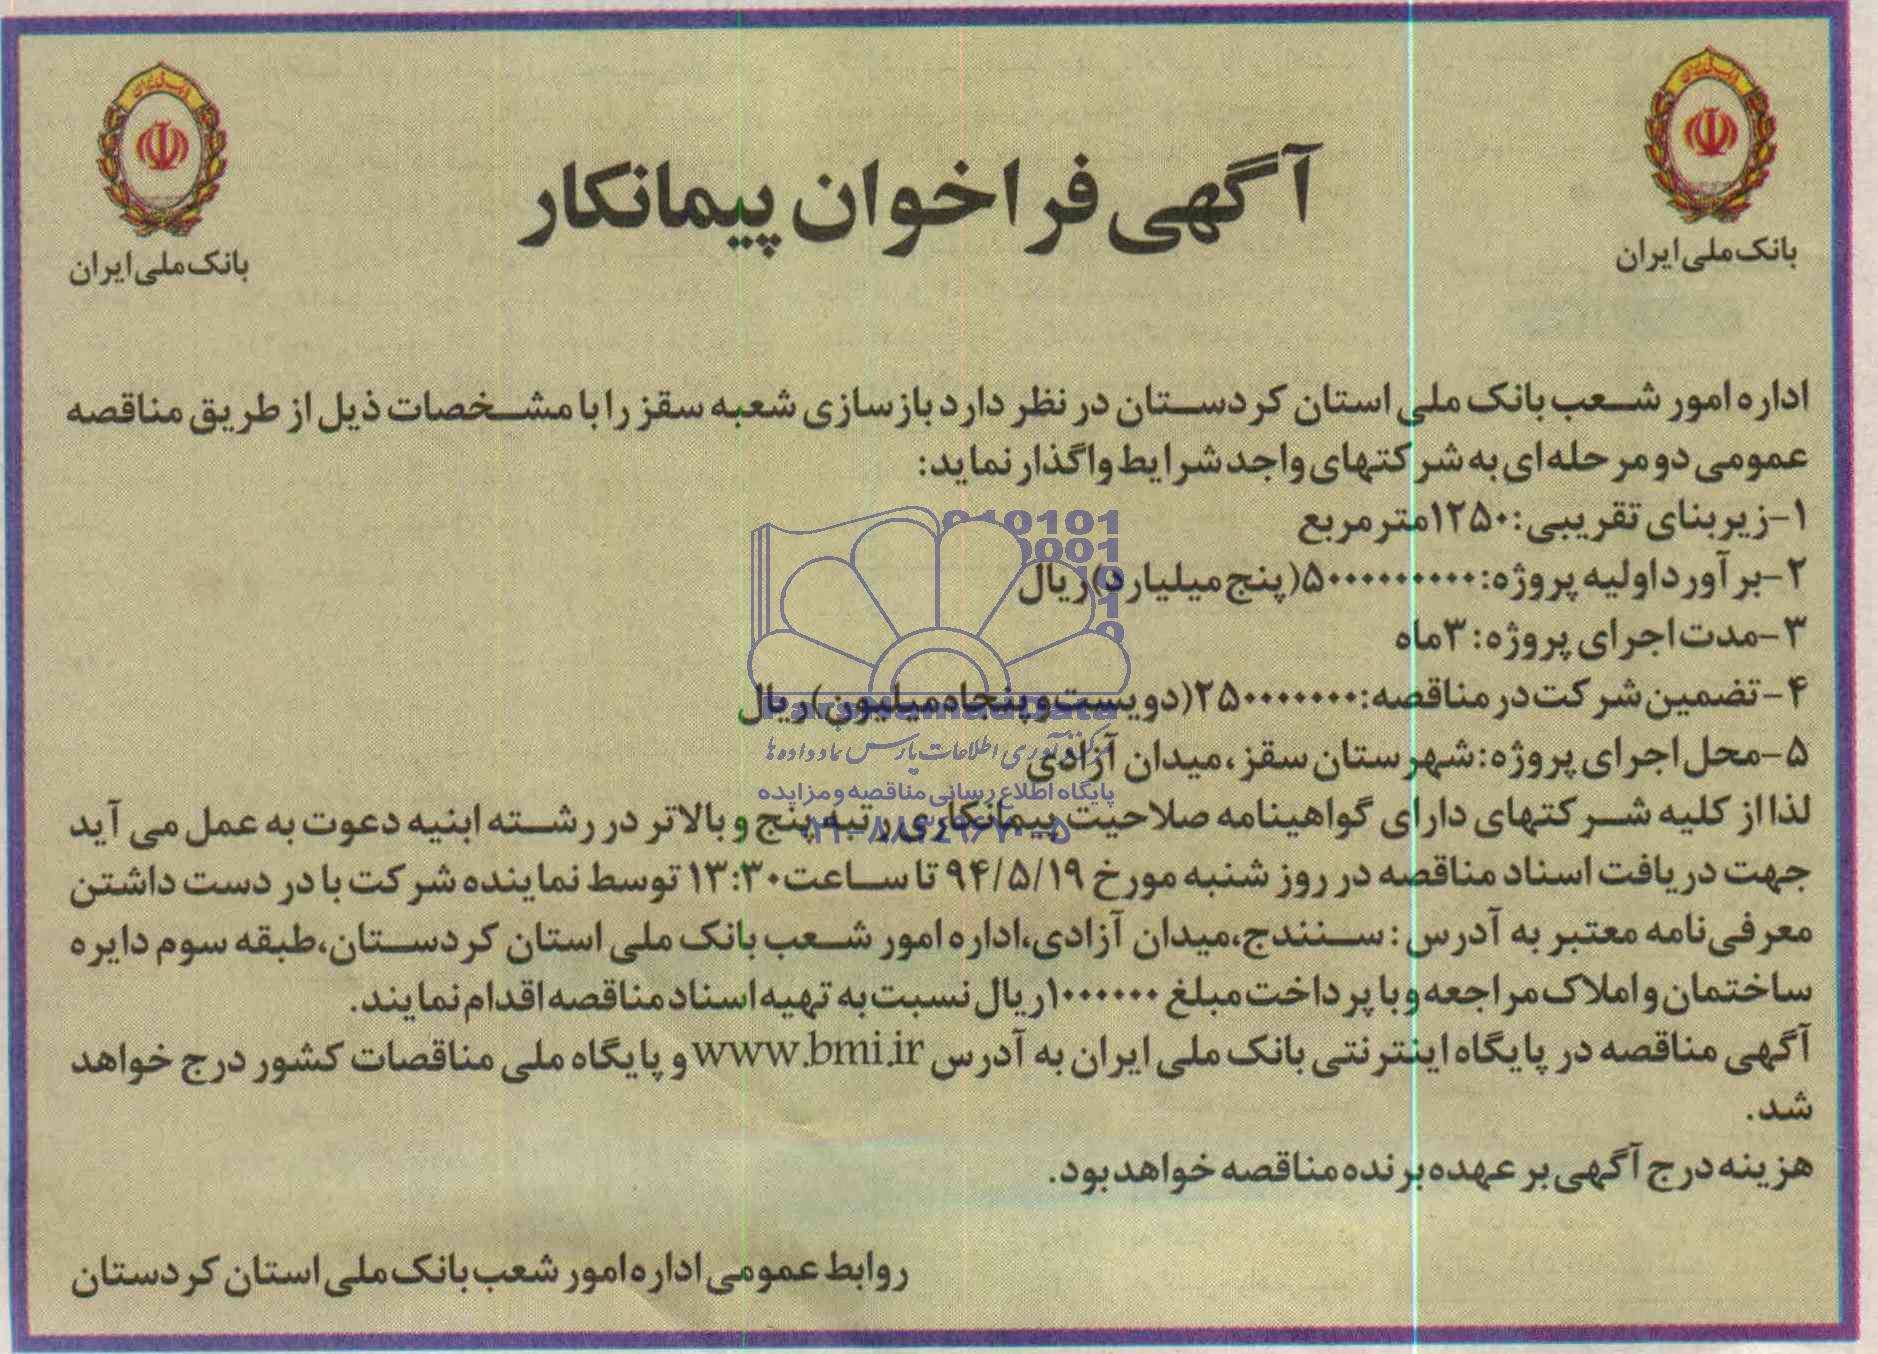 بانک ملی ایران
بانک ملی ایران
آگهی فراخوان پیمانکار
اداره امور شعب بانک ملی استان کردستان در نظر دارد بازسازی شعبه سقز را با مشخصات ذیل از طریق مناقصه
عمومی دو مرحله ای به شرکتهای واجد شرایط واگذار نماید:
۱-زیربنای تقریبی: ۱۲۵۰مترمربع
۲-برآورد اولیه پروژه: ۵۰۰۰۰۰۰۰۰۰(پنج میلیارد)ریال
۳-مدت اجرای پروژه: ۳ماه
۴-تضمین شرکت در مناقصه: ۲۵۰۰۰۰۰۰۰(دویست و پنجاه میلیون)ریال
۵-محل اجرای پروژه: شهرستان سقز، میدان آزادی
لذا از کلیه شرکتهای دارای گواهینامه صلاحیت پیمانکاری رتبه پنج و بالاتر در رشته ابنیه دعوت به عمل می آید
جهت دریافت اسناد مناقصه در روز شنبه مورخ ۹۴/۵/۱۹ تا ساعت ۱۳:۳۰ توسط نماینده شرکت با در دست داشتن
معرفی نامه معتبر به آدرس: سنندج،میدان آزادی،اداره امور شعب بانک ملی استان کردستان،طبقه سوم دایره
ساختمان و املاک مراجعه و با پرداخت مبلغ ۱۰۰۰۰۰۰ریال نسبت به تهیه اسناد مناقصه اقدام نمایند.
آگهی مناقصه در پایگاه اینترنتی بانک ملی ایران به آدرس www.bmi.ir و پایگاه ملی مناقصات کشور درج خواهد
شد.
هزینه درج آگهی بر عهده برنده مناقصه خواهد بود.
روابط عمومی اداره امور شعب بانک ملی استان کردستان
010101
0001
10
1
ParsNamadData
مرکز فن آوری اطلاعات پارس نماد داده ها
پایگاه اطلاع رسانی مناقصه و مزایده